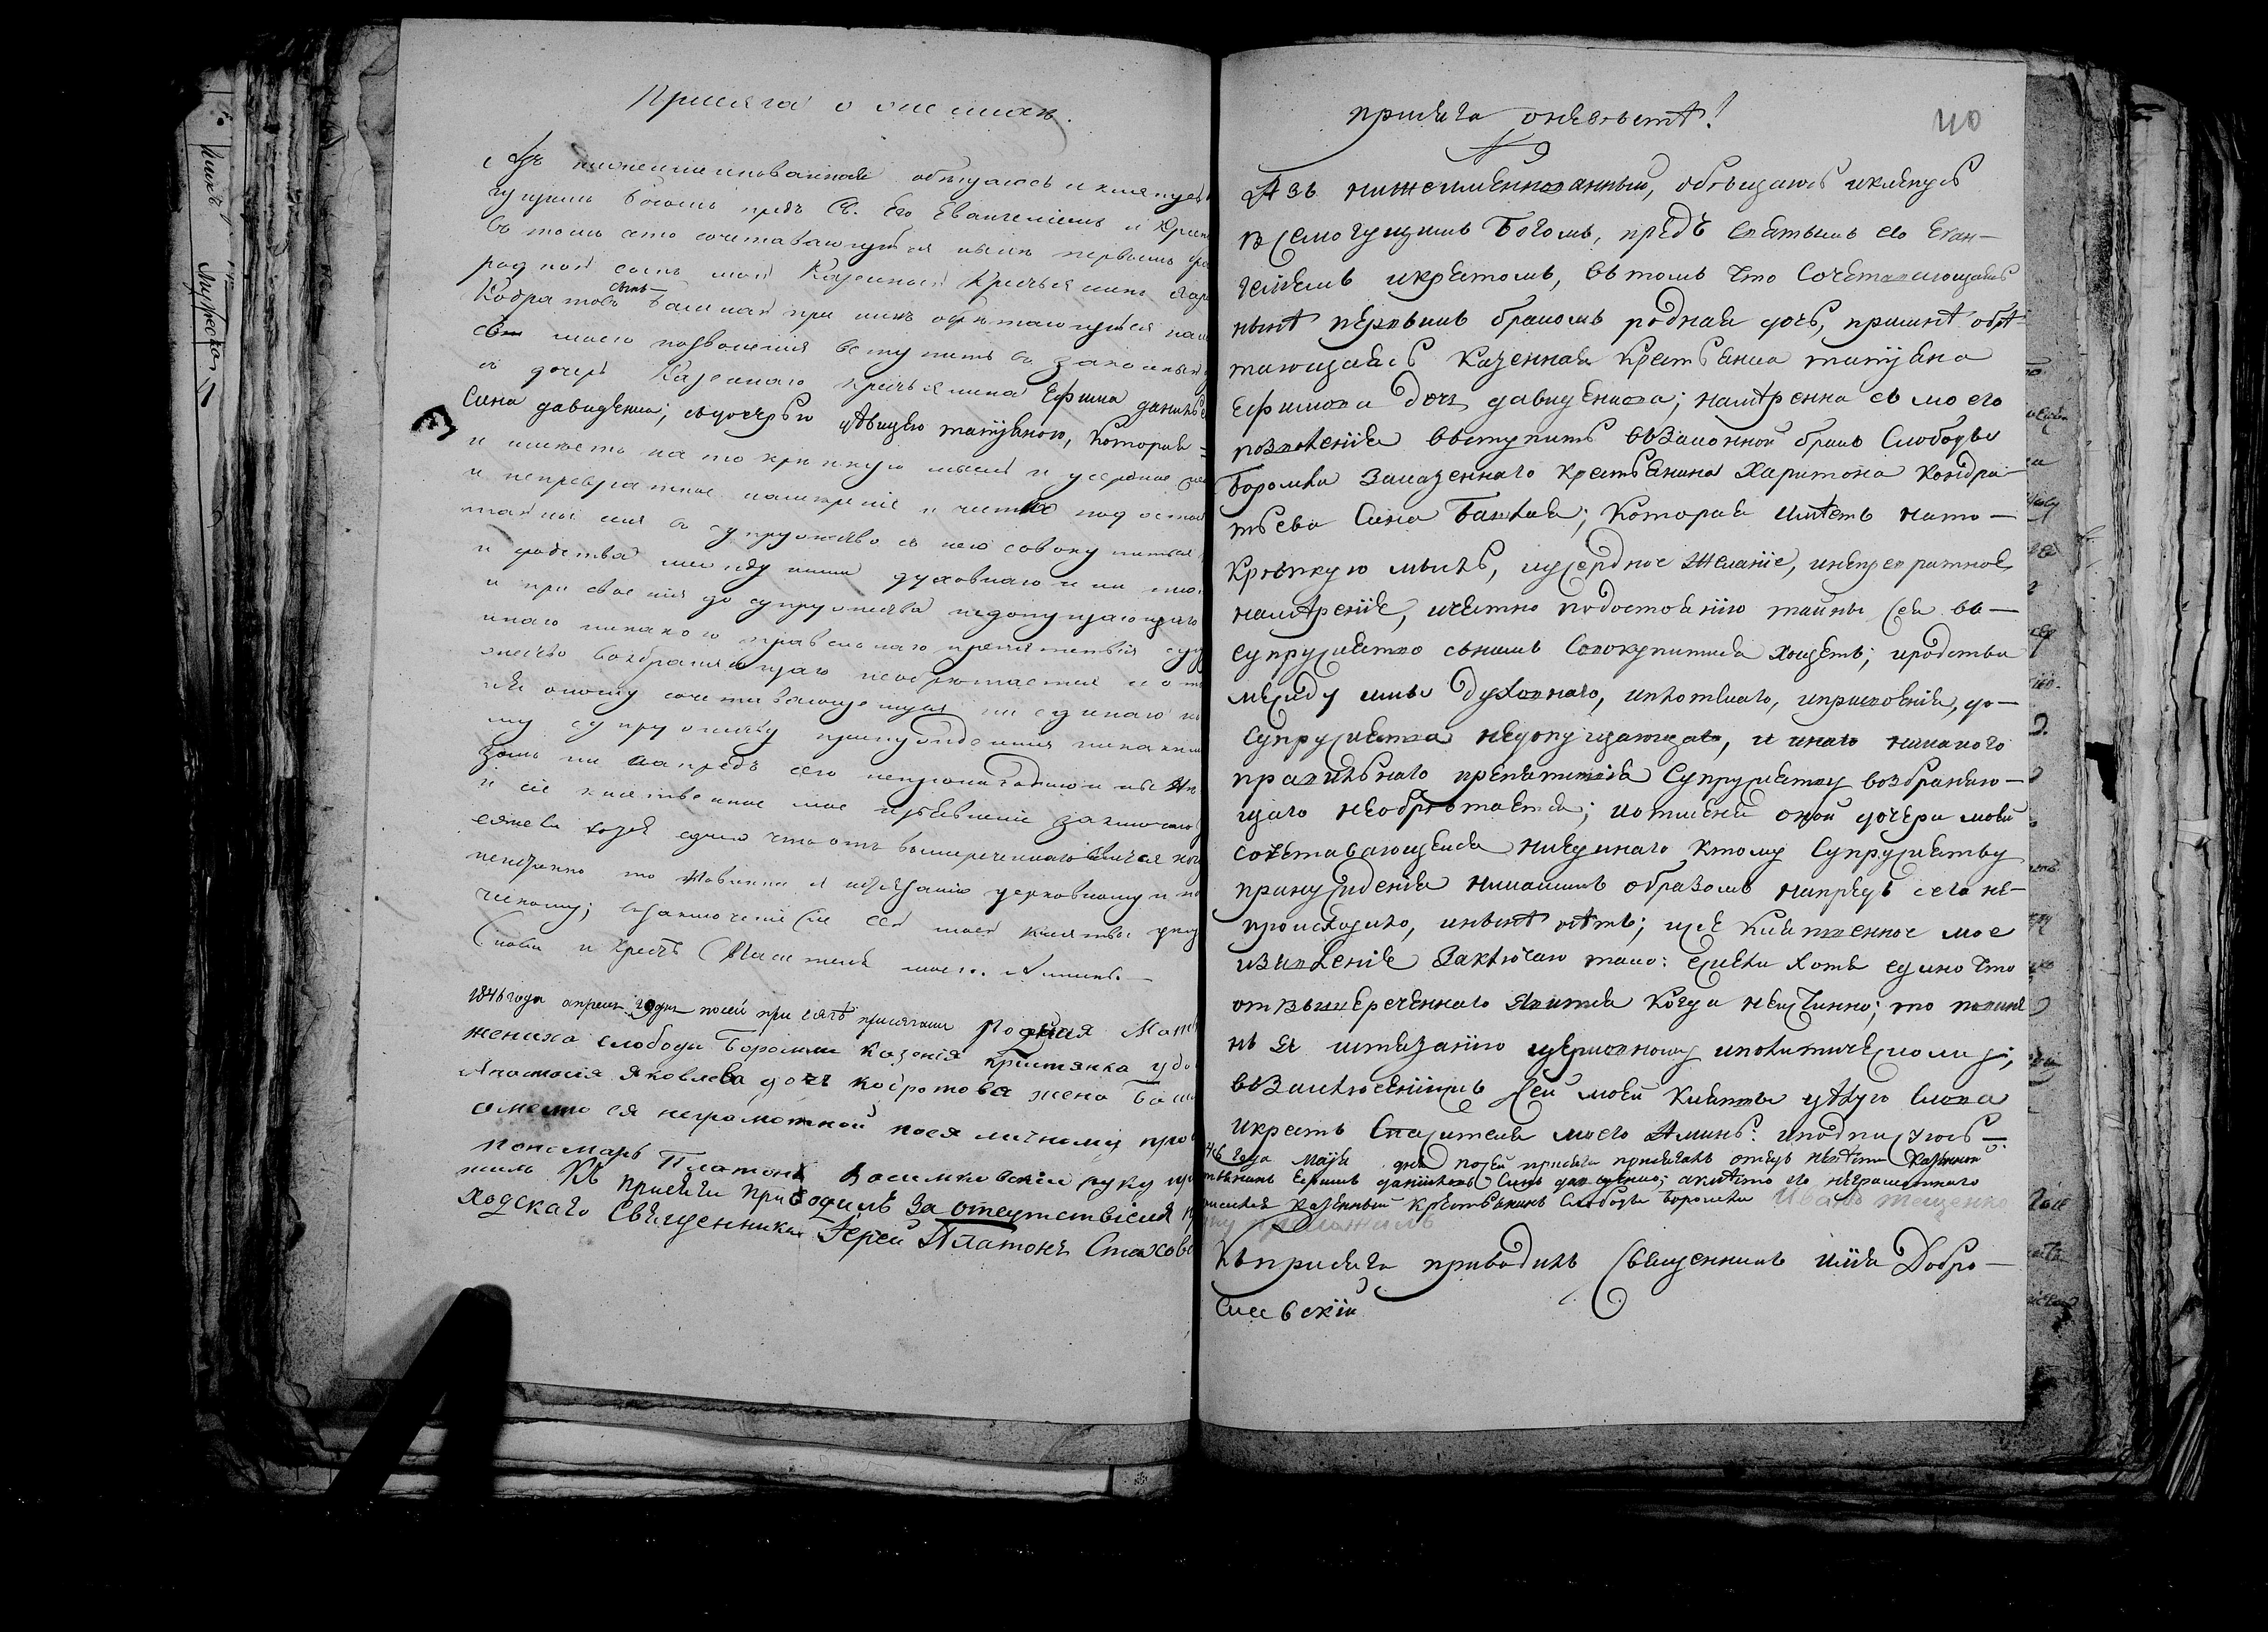 Присяга о женихѣ.
Азъ нижеименованная обѣщаюсь и кленусь
гущимъ Богомъ предъ Св. Его Евангелiемъ и Крес
въ томъ что сочетавающiйся нынѣ первымъ бра
родной сынъ мой Казенной Крестьянинъ Хари
Кодратовъ сынъ при нихъ обѣтающiйся на
съ моего позволенiя вступить въ законный
дочерь Казеннаго крестьянина Ефима данильв
Сина давиденка; съдочерью дѣвицею татiяною, которая
и имѣетъ на то крѣпкую мысль и усердное
и непревратное намѣренiе и честно подостоя
тайны сея въ супружество съ нею совокупиться
и родства между ними духовнаго и ни пло
и присвоенiя до супружества недопущающаго
инаго никакого правильнаго препятствiя су
жеству возбраняющаго необрѣтается и от
оному сочетавающемуся ни единаго к
му супружеству принужденiя никаким
зомъ ни напредъ сего непроисходило и нынѣ
и сiе клятвенное мое изъявленiе заключаю
ежели хотя едино что отъ вышереченнаго явится ког
неистинно то повинна я истязанiю церковному и по
ческому; взаключенiе сей моей клятвы цѣлу
Слова и Крестъ Спасителя моего. Аминь.
1846 года апреля дня посей присягѣ присягали Родная Мат
жениха слободы Боромли казенiя кристянка удо
Анастасiя Яковлева дочь кодратова жена
аместо ея неграмотной поея личному про
пономарь Платонъ Василковскiй руку при
жилъ Къ присяги приводилъ за отсутствiемъ п
ходскаго Священника Iерей Платонъ Стахов
присяга оневѣстѣ!
40
Азъ нижеименнованный, обѣщаюсь икленусь
всемогущимъ Богомъ, предъ святымъ его Еван-
гелiемъ икрестомъ, въ томъ что Сочетавающаясь
нынѣ первымъ бракомъ родная дочь, примнѣ обѣ-
тающаясь Казенная Крестьянка татiяна
Ефимова дочь давиденкова; намѣренна съ моего
позволенiя вступить взаконной бракъ Слободы
Боромли заказеннаго Крестьянина Харитона Кондра-
тьева Сина; Которая имѣетъ нато-
Крѣпкую мысль, иусердное желанiе, инепревратное
намѣренiе, ичестно подостоянiю тайны Сея въ-
супружество сънимъ Совокупитися хощетъ; иродства
между ими духовнаго, иплотнаго, иприсвоенiя, до-
Супружества недопущающаго, и инаго никакого
правильнаго препятствiя Супружеству возбраняю-
щаго необрѣтается; иотменя оной дочери моей
сочетавающейся ниединаго ктому Супружеству
принужденiя никакимъ образомъ напредъ сего не-
происходило, инынѣ нѣтъ; исiе Клятвенное мое
изъявленiе заключаю тако: ежели хотя едино что
отвышереченнаго явится когда неистинно; то повине
нъ я истязанiю церковному иполитическому;
взаключенiижъ Сей моей Клятвы цѣлую Слова
икрестъ Спасителя моего Аминь: иподписуюсь
46 года Маiя дня посей присяги присягалъ отецъ невѣсты Казенной
тьянинъ Ефимъ данииловъ Синъ давиденко; авмѣсто его неграмотнаго
Казенный Крестьянинъ Слободы Боромли Иванъ тещенко
ку приложилъ
Къприсяга приводилъ Священникъ Илiя Добро-
сиевскiй